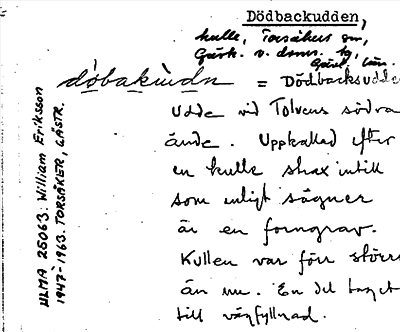 Dödbackudden,
kulle, Torsåkers sn,
Gästr. v. doms. tg,
Gävl. län.
dòbakùdn = Dödbacksudde
Udde vid Tolvens södra
ände. Uppkallad efter
en kulle strax intill
som enligt sägner
är en forngrav.
Kullen var förr större
än nu. En del taget
till vägfyllnad.
ULMA 25063: William Eriksson
1947-1963. TORSÅKER, GÄSTR.